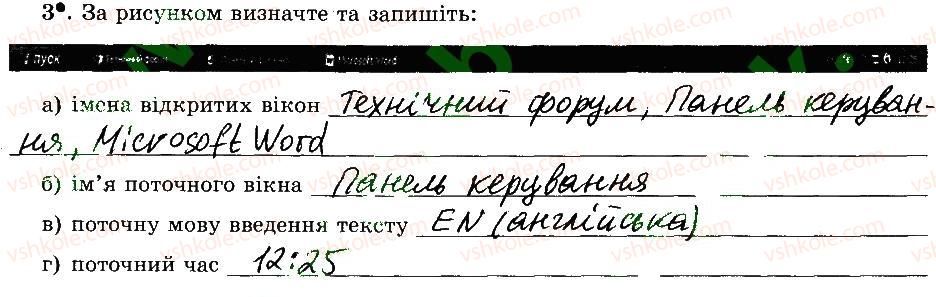 3•. За рисунком визначте та запишіть:
пуск Microsoft Word
а) імена відкритих вікон Технічний форум, Панель керуван-
ня, Microsoft Word
б) ім'я поточного вікна Панель керування
в) поточну мову введення тексту EN (англійська)
г) поточний час 12:25
vshkole.com